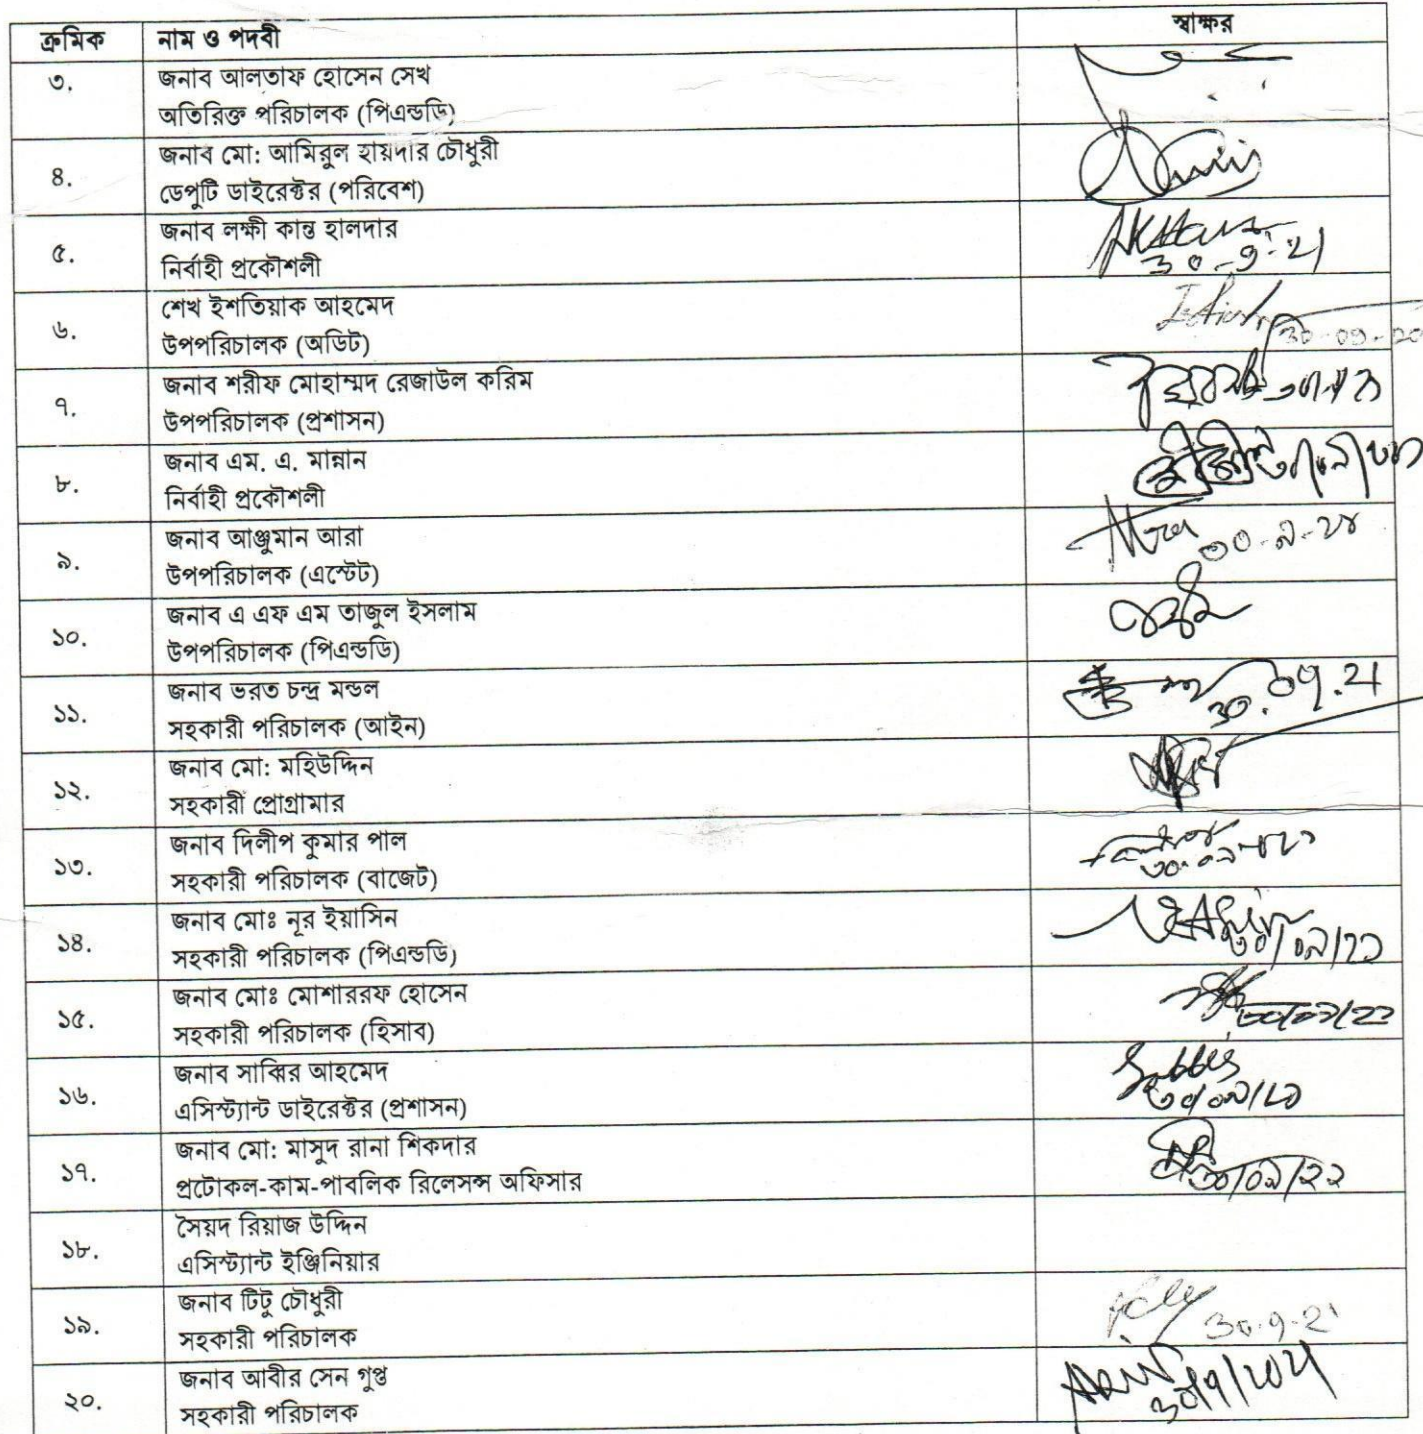 ক্রমিক নাম ও পদবী স্বাক্ষর
৩. জনাব আলতাফ হোসেন সেখ
অতিরিক্ত পরিচালক (পিএন্ডডি)
৪. জনাব মো: আমিরুল হায়দার চৌধুরী
ডেপুটি ডাইরেক্টর (পরিবেশ)
৫. জনাব লক্ষী কান্ত হালদার
নির্বাহী প্রকৌশলী
30-9-21
৬. শেখ ইশতিয়াক আহমেদ
উপপরিচালক (অডিট)
30-09-20
৭. জনাব শরীফ মোহাম্মদ রেজাউল করিম
উপপরিচালক (প্রশাসন)
৮. জনাব এম. এ. মান্নান
নির্বাহী প্রকৌশলী
৯. জনাব আঞ্জুমান আরা
উপপরিচালক (এস্টেট)
১০. জনাব এ এফ এম তাজুল ইসলাম
উপপরিচালক (পিএন্ডডি)
১১. জনাব ভরত চন্দ্র মন্ডল
সহকারী পরিচালক (আইন)
30.09.21
১২. জনাব মো: মহিউদ্দিন
সহকারী প্রোগ্রামার
১৩. জনাব দিলীপ কুমার পাল
সহকারী পরিচালক (বাজেট)
১৪. জনাব মোঃ নূর ইয়াসিন
সহকারী পরিচালক (পিএন্ডডি)
১৫. জনাব মোঃ মোশাররফ হোসেন
সহকারী পরিচালক (হিসাব)
১৬. জনাব সাব্বির আহমেদ
এসিস্ট্যান্ট ডাইরেক্টর (প্রশাসন)
১৭. জনাব মো: মাসুদ রানা শিকদার
প্রটোকল-কাম-পাবলিক রিলেসন্স অফিসার
১৮. সৈয়দ রিয়াজ উদ্দিন
এসিস্ট্যান্ট ইঞ্জিনিয়ার
১৯. জনাব টিটু চৌধুরী
সহকারী পরিচালক
30-9-21
২০. জনাব আবীর সেন গুপ্ত
সহকারী পরিচালক
30/9/2021